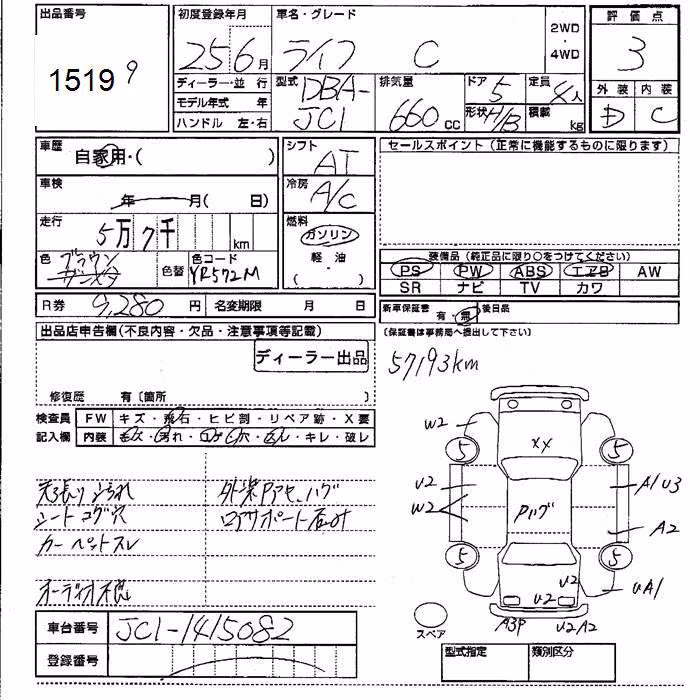 出品番号
15199
初度登録年月
25 6月
車名・グレード
ライフ C
2WD
・
4WD
評価点
3
ディーラー・並行
モデル年式 年
ハンドル 左・右
型式
DBA-
JC1
排気量
660cc
ドア 5
形状 H/B
定員 4人
積載 kg
外装 内装
D C
車歴
自家用・( )
車検
年 月( 日)
走行
5万7千 km
色 ブラウン
色替
色コード
YR572M
シフト
AT
冷房
A/C
燃料
ガソリン
軽油
( )
セールスポイント(正常に機能するものに限ります)
装備品(純正品に限り○をつけてください)
PS PW ABS エアB AW
SR ナビ TV カワ
R券 9,280円 名変期限 月 日
新車保証書 有・無 後日品
(保証書は事務局へ提出して下さい)
出品店申告欄(不良内容・欠品・注意事項等記載)
ディーラー出品
修復歴 有(箇所 )
57193km
検査員
記入欄
FW キズ・飛石・ヒビ割・リペア跡・X要
内装 キズ・汚れ・コゲ・穴・スレ・キレ・破レ
天張りよごれ
シートコゲ穴
カーペットスレ
オーディオ不良
外装Pアセ、ハゲ
ロアサポート石付
車台番号 JC1-1415082
登録番号
W2
XX
5 5
U2
W2
Pハゲ
A1U3
A2
5 5
U2
U2
UA1
A3P U2A2
スペア
型式指定 類別区分